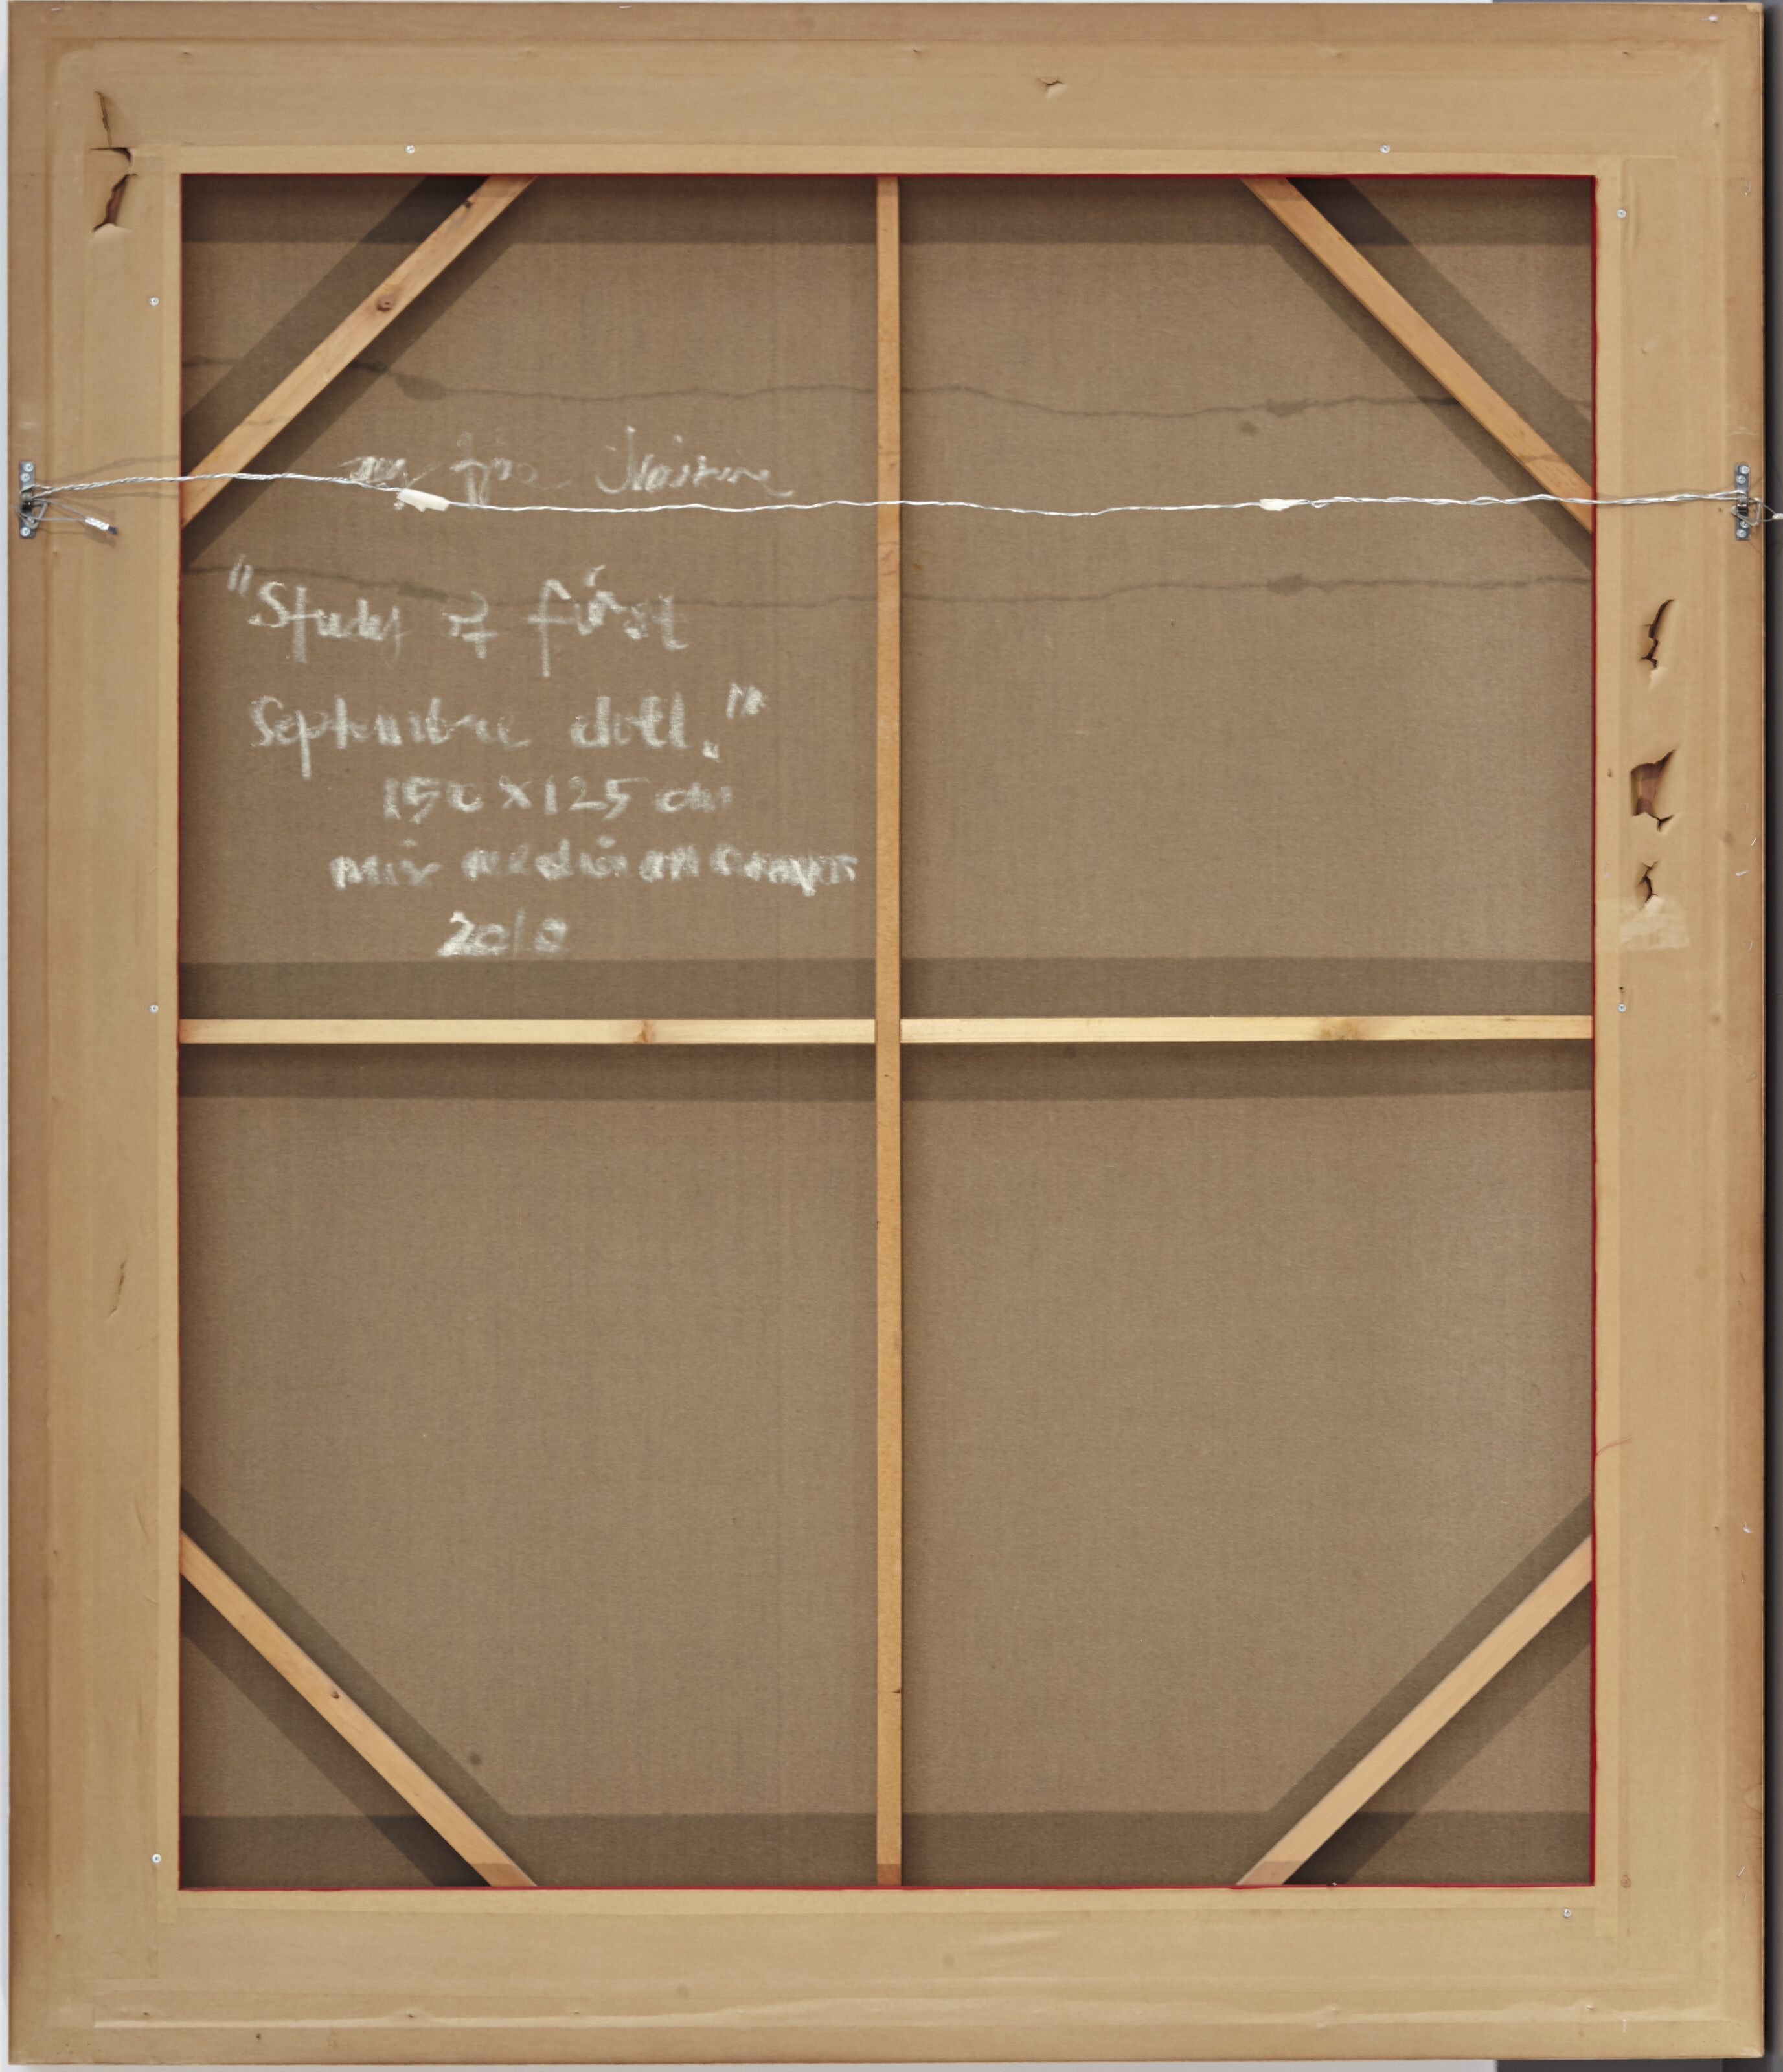 "Study of first
Septembre doll."
150 x 125 cm
mix media on canvas
2010